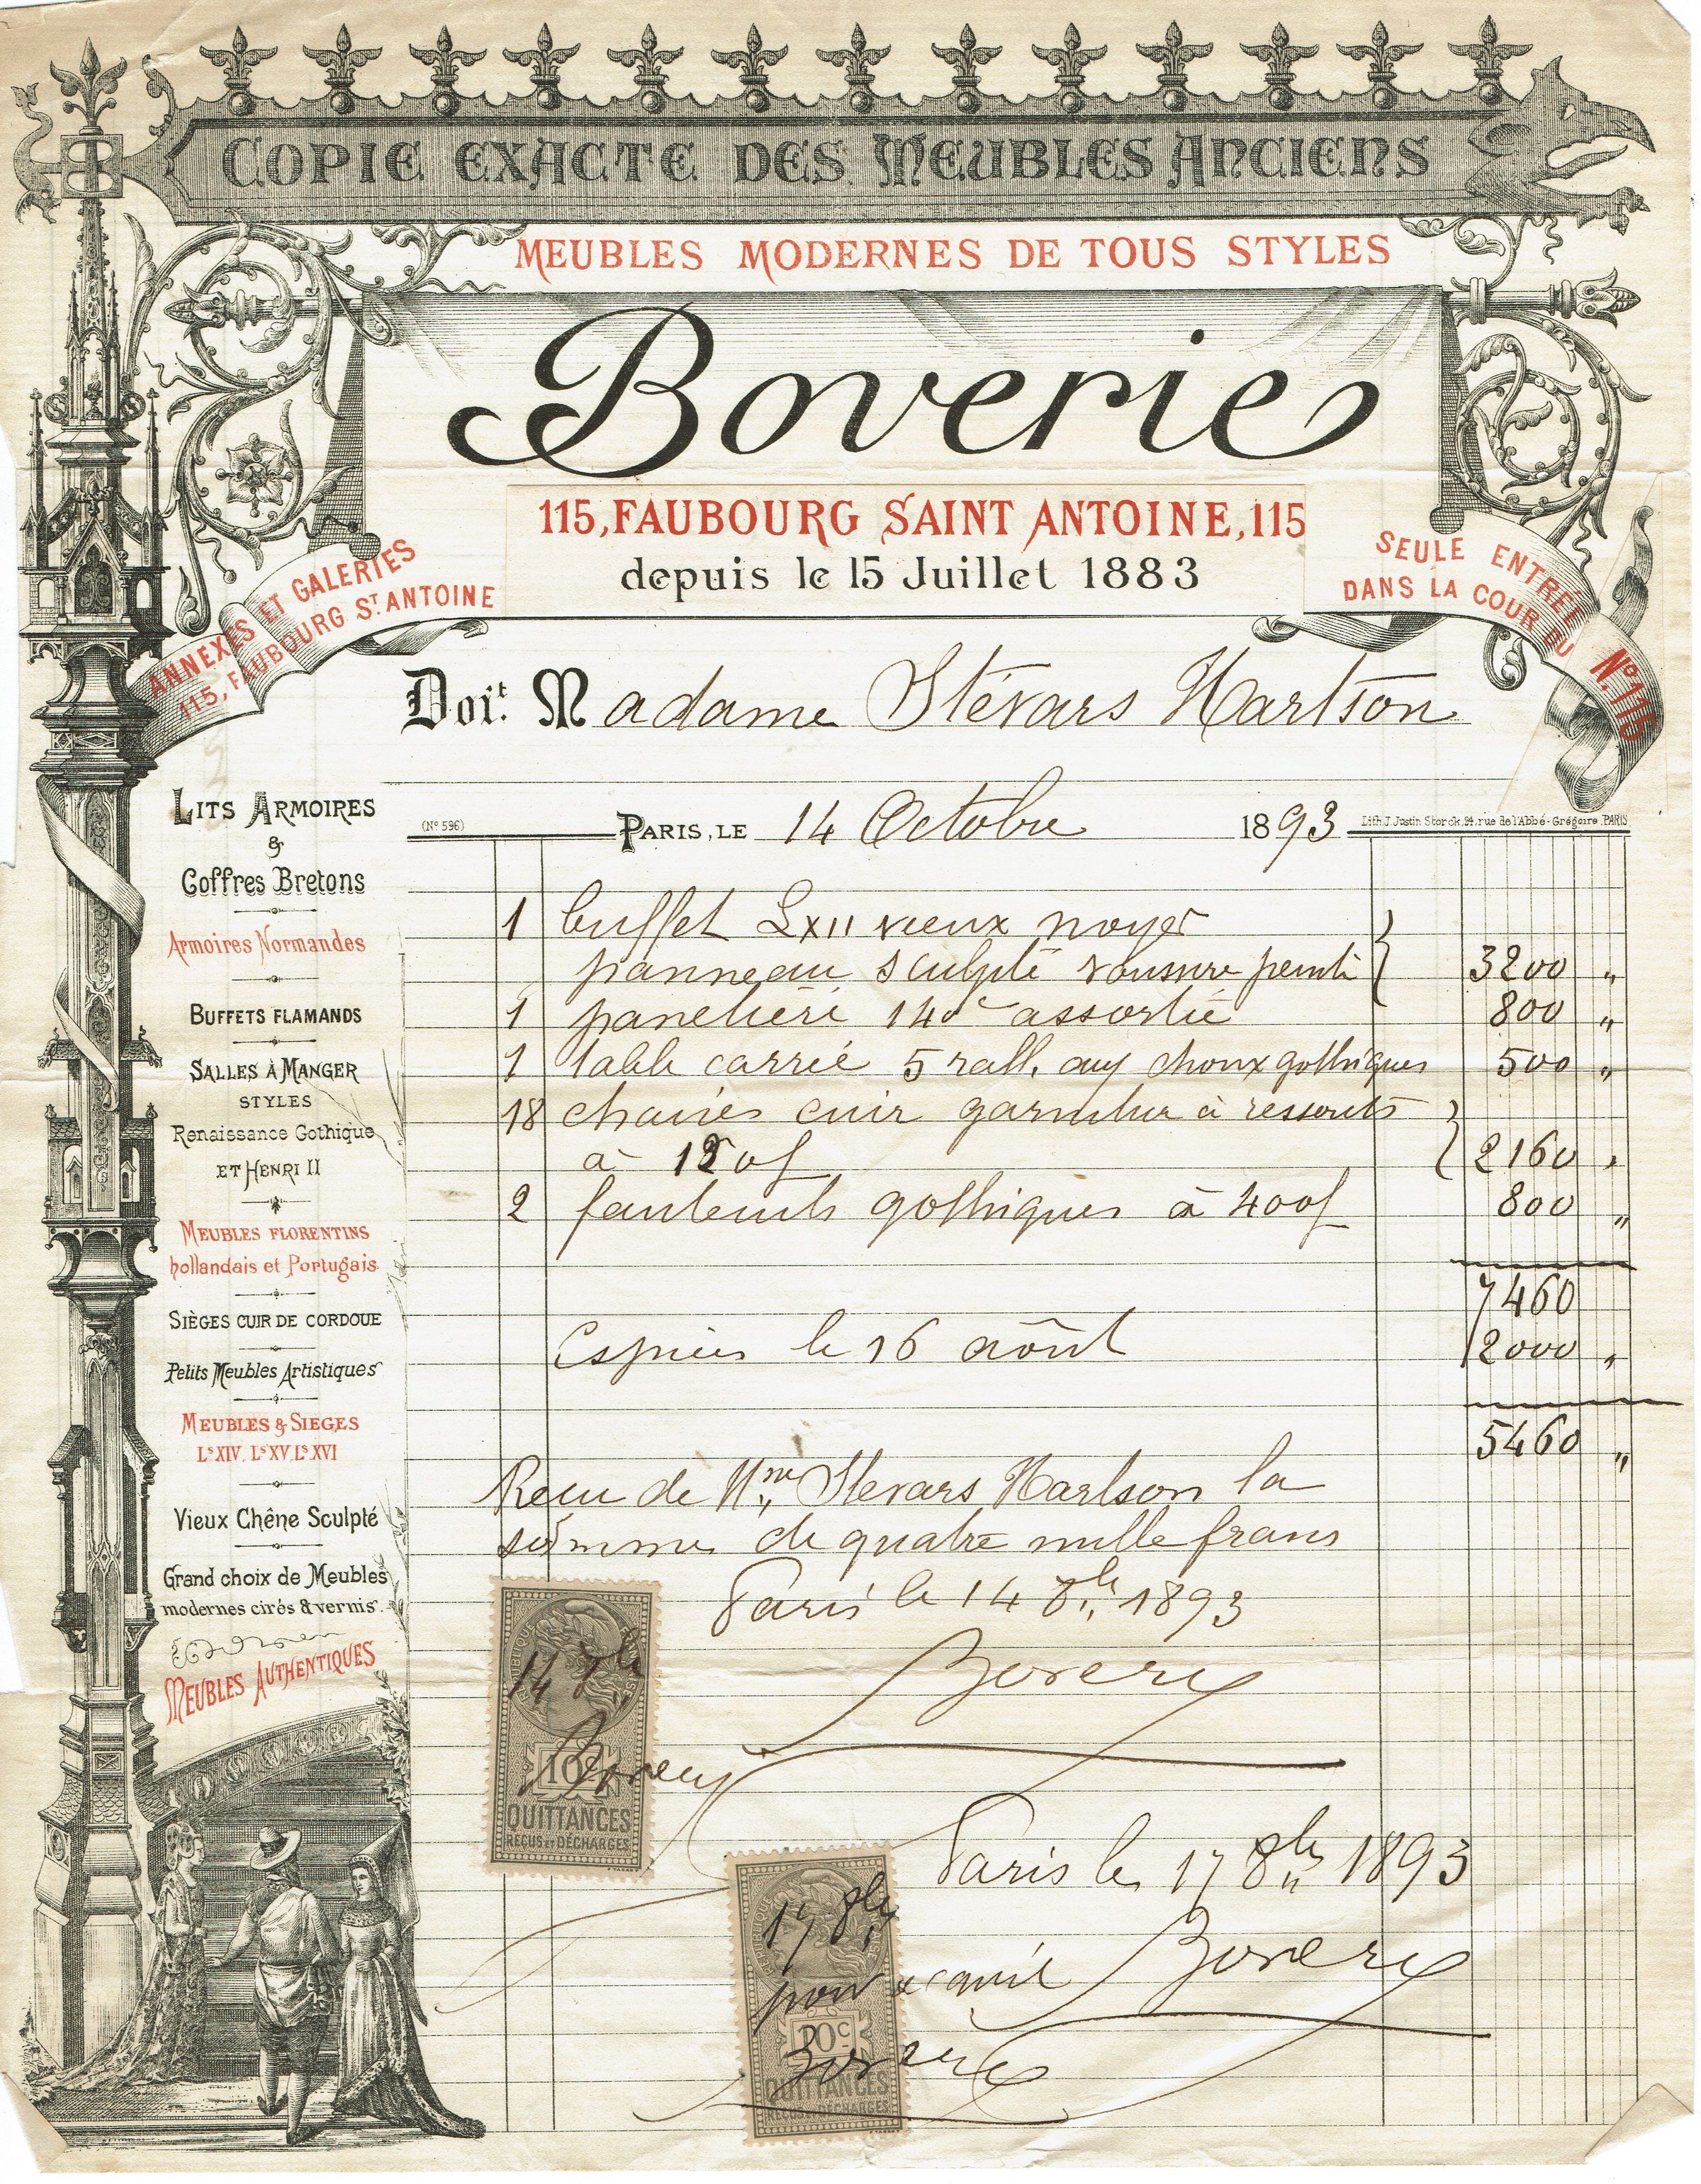 COPIE EXACTE DES MEUBLES ANCIENS
MEUBLES MODERNES DE TOUS STYLES
Boverie
115, FAUBOURG SAINT ANTOINE, 115
depuis le 15 Juillet 1883
ANNEXES ET GALERIES
115, FAUBOURG ST. ANTOINE
SEULE ENTRÉE
DANS LA COUR DU No. 115
Doit. Madame Stévars Hartson
(No 596) PARIS, LE 14 Octobre 1893 Lith. J. Justin Storck, 24, rue de l'Abbé-Grégoire, PARIS
LITS ARMOIRES
&
Coffres Bretons
Armoires Normandes
BUFFETS FLAMANDS
SALLES À MANGER
STYLES
Renaissance Gothique
ET HENRI II
MEUBLES FLORENTINS
hollandais et Portugais
SIÈGES CUIR DE CORDOUE
Petits Meubles Artistiques
MEUBLES & SIEGES
Ls XIV. Ls XV. Ls XVI
Vieux Chêne Sculpté
Grand choix de Meubles
modernes cirés & vernis.
MEUBLES AUTHENTIQUES
1 buffet LXII vieux noyer
panneau sculpté voussure peinte 3200 "
1 panetière 140c assortie 800 "
1 table carrée 5 rall. aux choux gothiques 500 "
18 chaises cuir garniture à ressorts
à 120f 2160 "
2 fauteuils gothiques à 400f 800 "
7460
Espèces le 16 août 2000 "
5460 "
Recu de Mme Stevars Hartson la
somme de quatre mille francs
Paris le 14 8bre 1893
Bovery
14 8bre
Bovery
10c
QUITTANCES
REÇUS ET DÉCHARGES
Paris le 17 8bre 1893
17 8bre
pour acquit Bovery
10c
Bovery
QUITTANCES
REÇUS ET DÉCHARGES